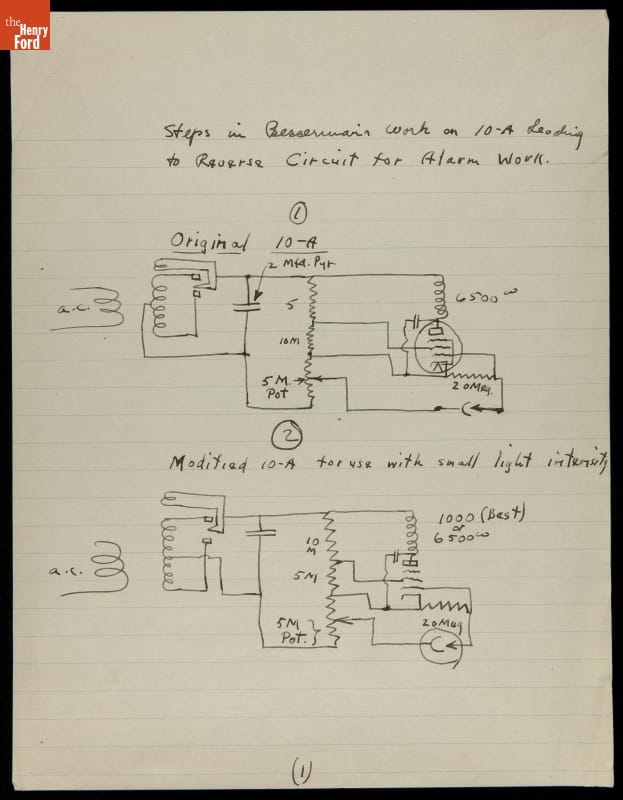 the
Henry
Ford
Steps in Besserman's work on 10-A Leading
to Reverse Circuit for Alarm Work.
1
Original 10-A
2 Mfd. Pyr.
a.c.
5
6500ω
10M
5 M.
Pot
20Meg.
2
Modified 10-A for use with small light intensity
1000 (Best)
or
6500ω
10
M
a.c.
5M
5M
Pot.
20Meg
(1)